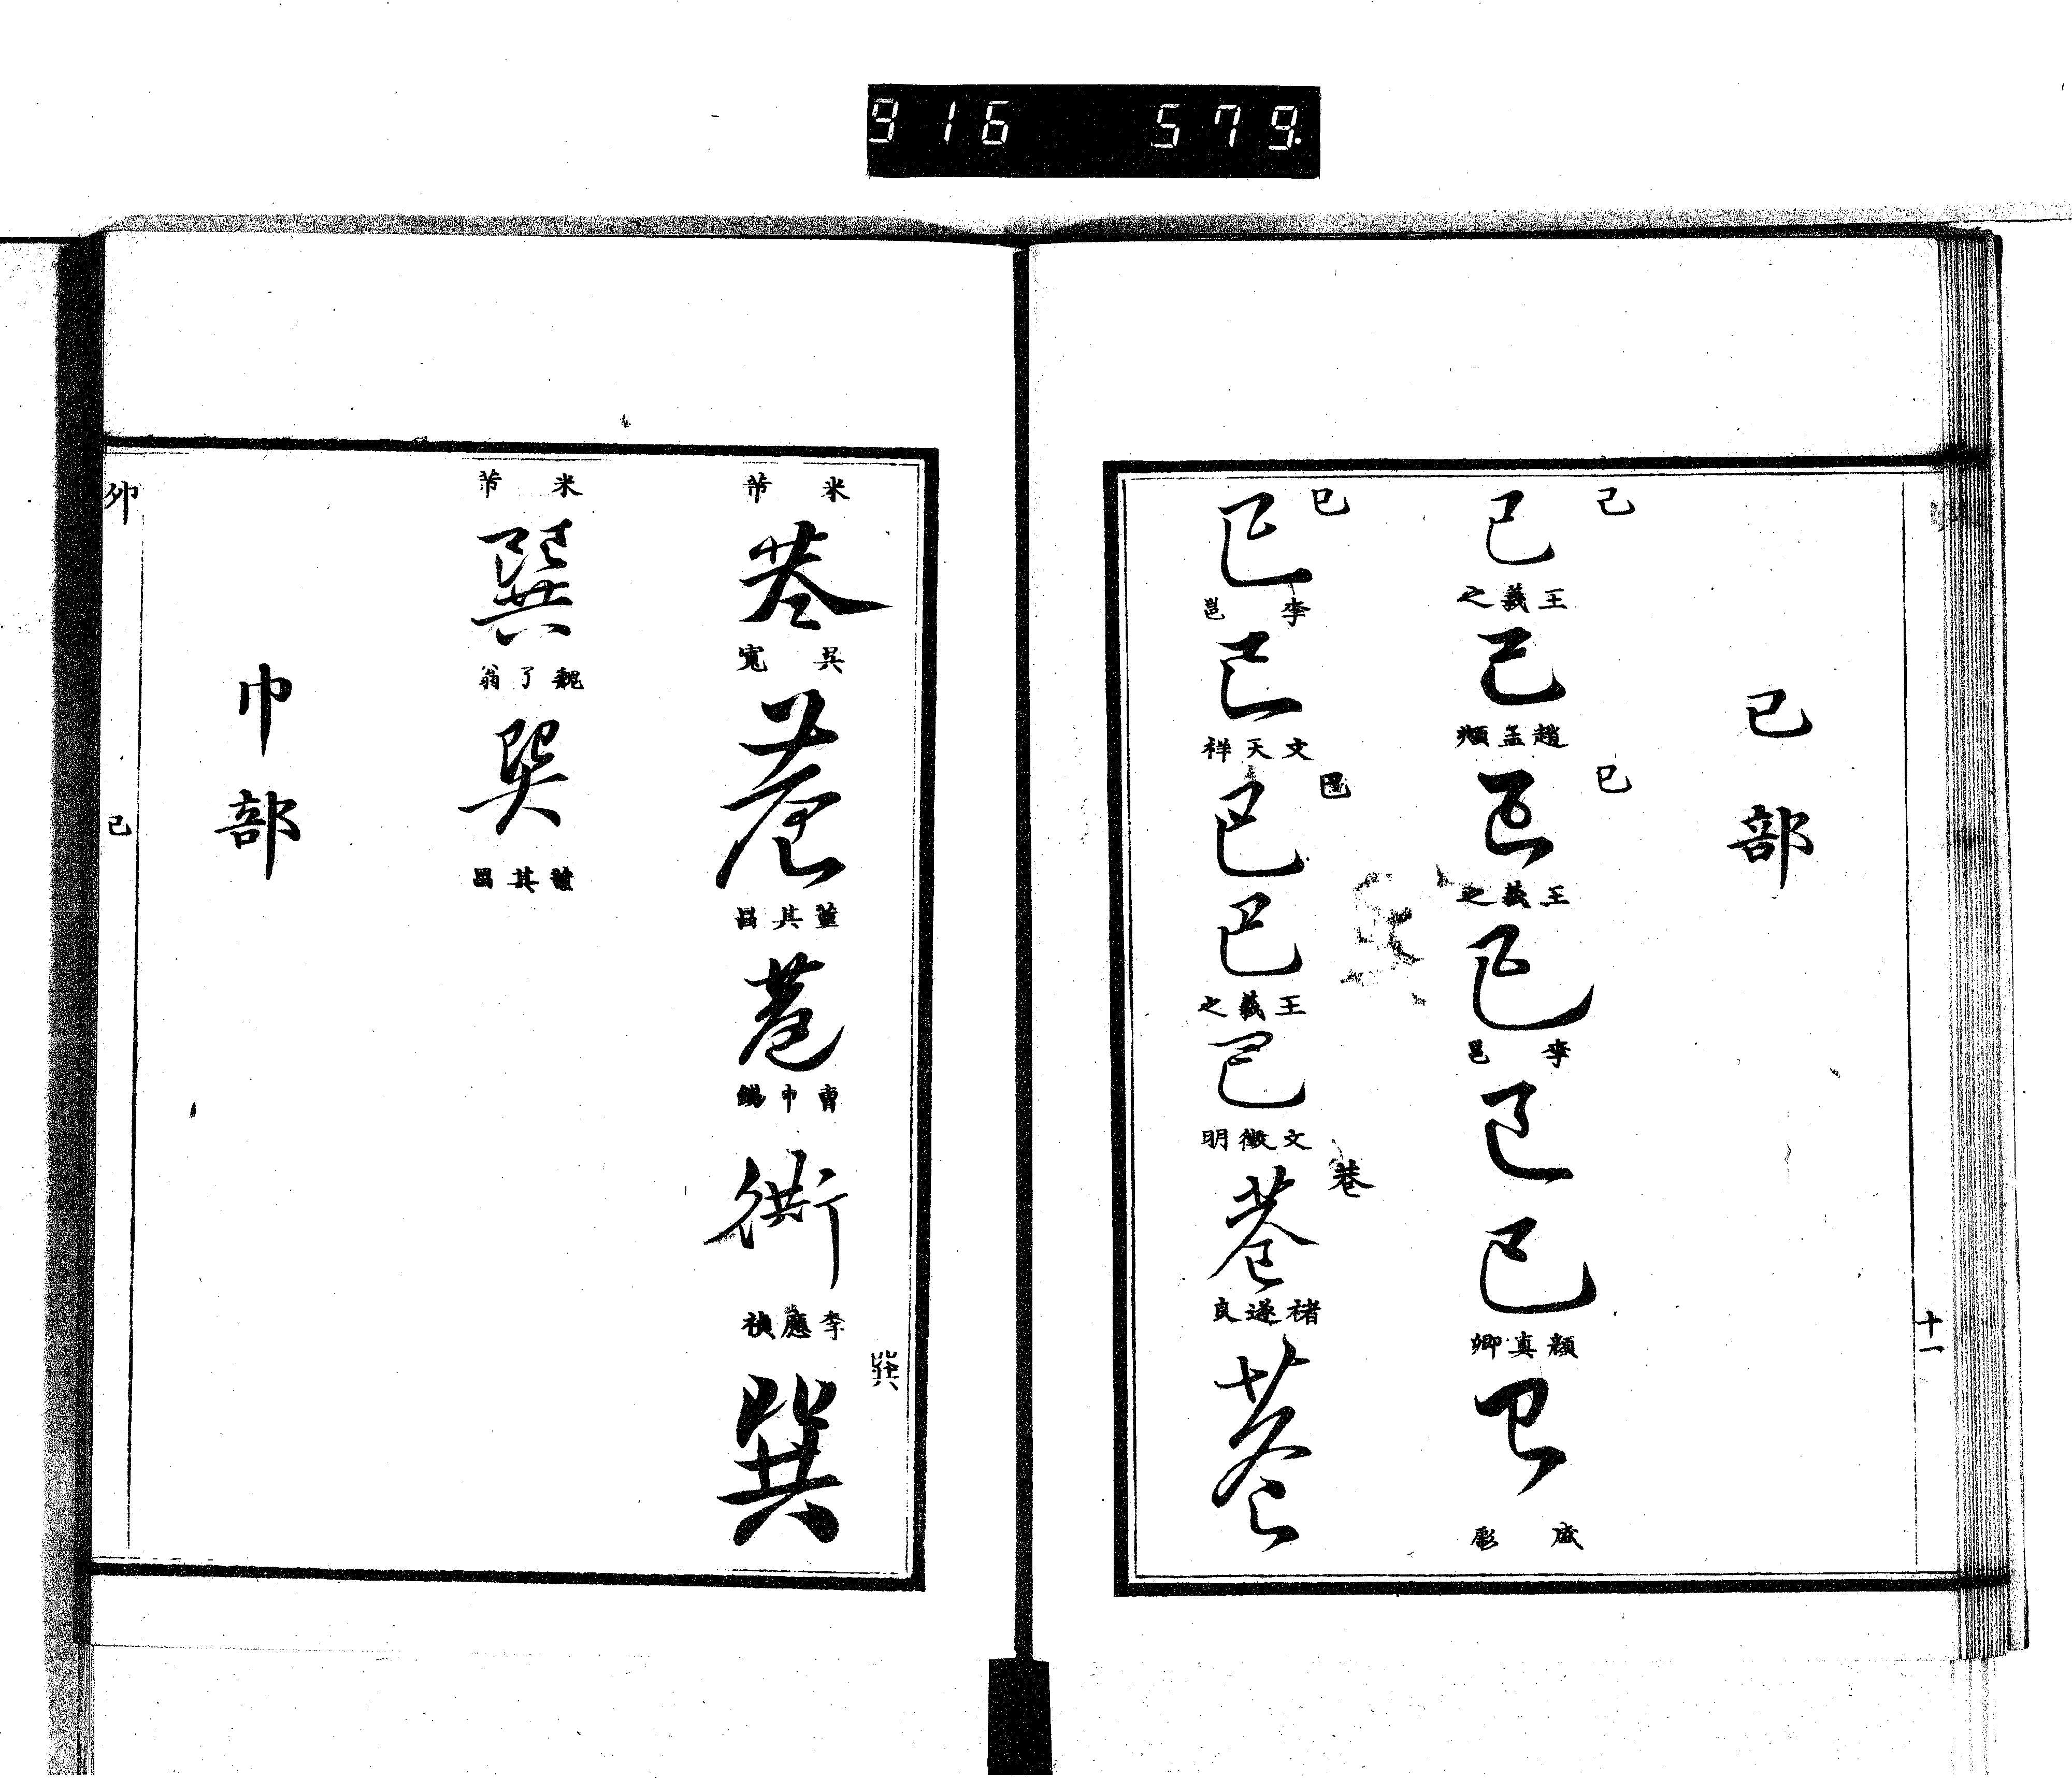 916 579.
十一
己部
己
已
王羲之
己
趙孟頫
已
已
王羲之
已
李邕
已
已
顔真卿
已
咸彪
巳
已
李邕
已
文天祥
巴
巴
巴
王羲之
巴
文徵明
巷
巷
褚遂良
巷
米芾
巷
吳寬
巷
董其昌
巷
李應禎
巽
巽
米芾
巽
魏了翁
巽
董其昌
巾部
卯
己